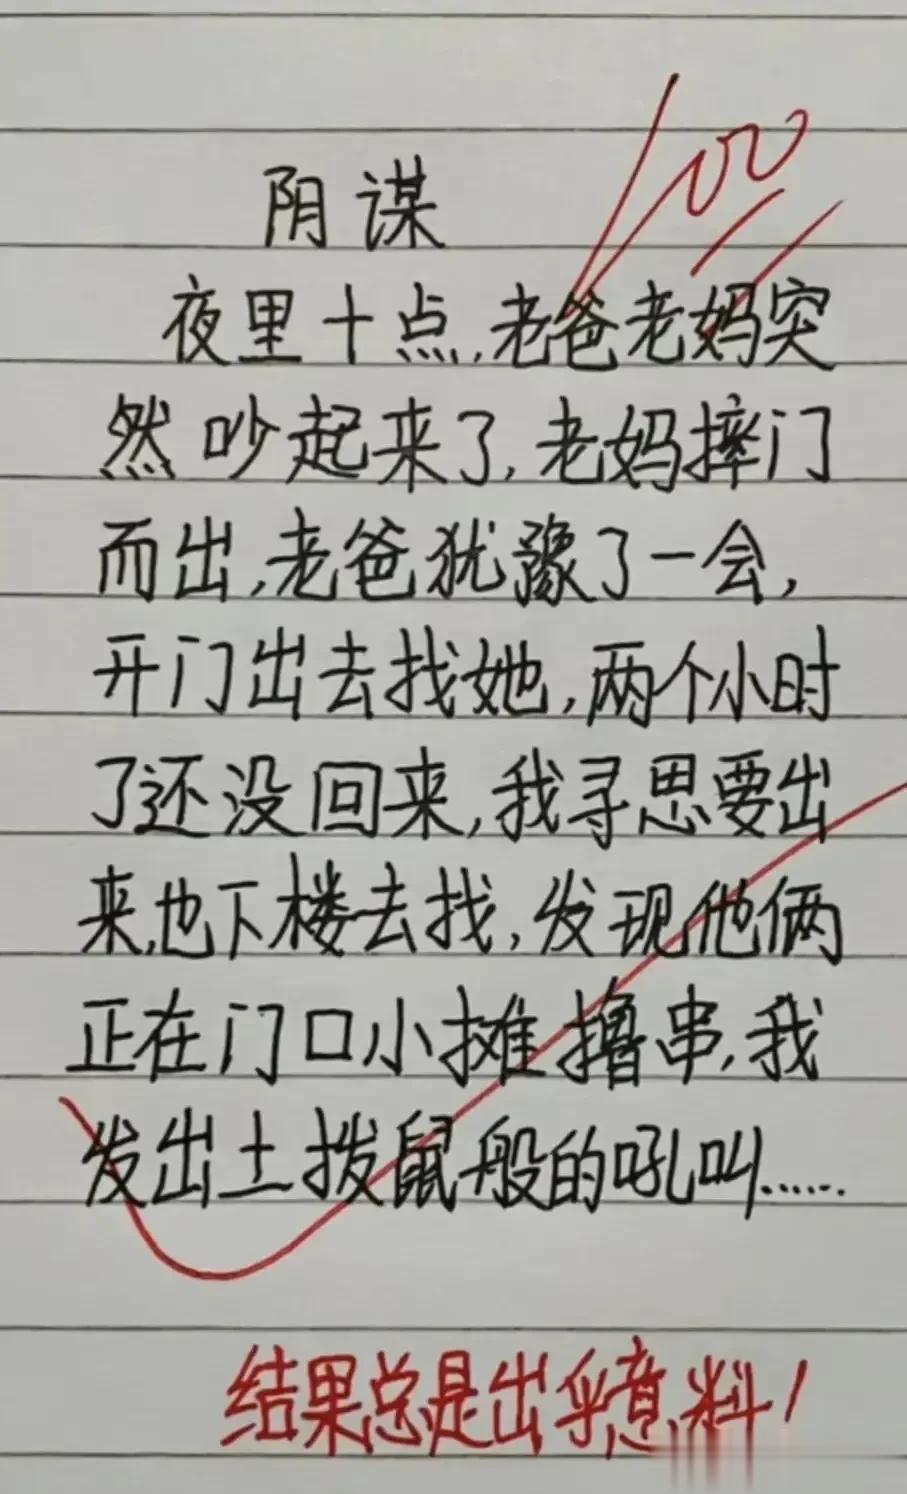 100
阴谋
夜里十点,老爸老妈突
然吵起来了,老妈摔门
而出,老爸犹豫了一会,
开门出去找她,两个小时
了还没回来,我寻思要出
来,也下楼去找,发现他俩
正在门口小摊撸串,我
发出土拨鼠般的吼叫......
结果总是出乎意料!